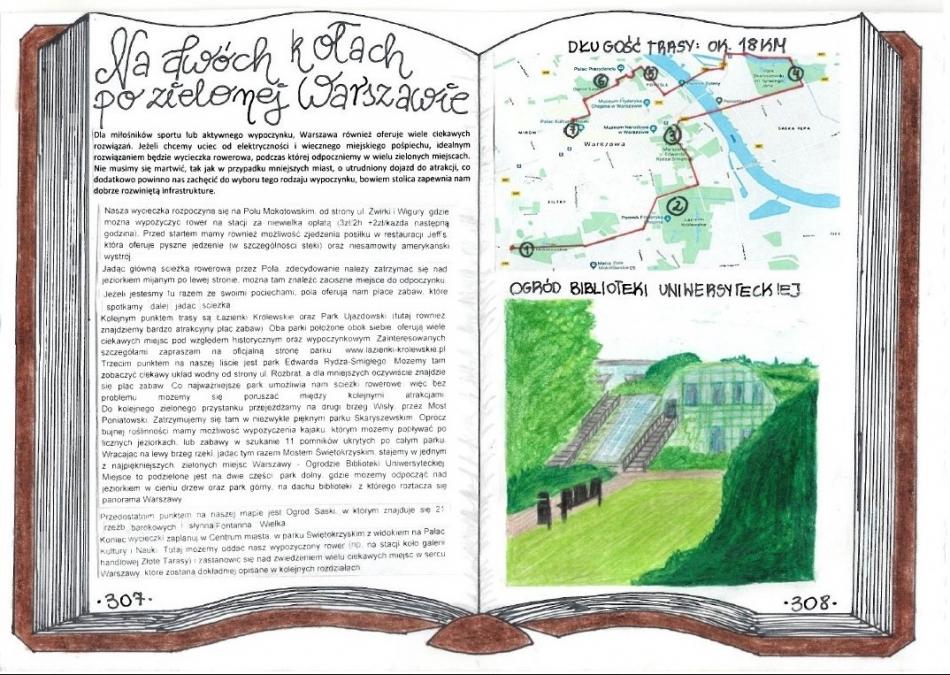 Na dwóch kołach
po zielonej Warszawie
Dla miłośników sportu lub aktywnego wypoczynku, Warszawa również oferuje wiele ciekawych
rozwiązań. Jeżeli chcemy uciec od elektryczności i wiecznego miejskiego pośpiechu, idealnym
rozwiązaniem będzie wycieczka rowerowa, podczas której odpoczniemy w wielu zielonych miejscach.
Nie musimy się martwić, tak jak w przypadku mniejszych miast, o utrudniony dojazd do atrakcji, co
dodatkowo powinno nas zachęcić do wyboru tego rodzaju wypoczynku, bowiem stolica zapewnia nam
dobrze rozwiniętą infrastrukture.
Nasza wycieczka rozpoczyna się na Polu Mokotowskim, od strony ul. Żwirki i Wigury, gdzie
można wypożyczyć rower na stacji za niewielką opłatą (3zł/2h +2zł/każda następną
godzina). Przed startem mamy również możliwość zjedzenia posiłku w restauracji Jeff's,
która oferuje pyszne jedzenie (w szczególności steki) oraz niesamowity amerykański
wystrój
Jadąc główną ścieżką rowerową przez Pola, zdecydowanie należy zatrzymać się nad
jeziorkiem mijanym po lewej stronie, można tam znaleźć zaciszne miejsce do odpoczynku.
Jeżeli jesteśmy tu razem ze swoimi pociechami, pola oferują nam place zabaw, które
spotkamy dalej jadąc ścieżką
Kolejnym punktem trasy są Łazienki Królewskie oraz Park Ujazdowski (tutaj również
znajdziemy bardzo atrakcyjny plac zabaw). Oba parki położone obok siebie oferują wiele
ciekawych miejsc pod względem historycznym oraz wypoczynkowym. Zainteresowanych
szczegółami zapraszam na oficjalną stronę parku www.lazienki-krolewskie.pl
Trzecim punktem na naszej liście jest park Edwarda Rydza-Śmigłego. Możemy tam
zobaczyć ciekawy układ wodny od strony ul. Rozbrat, a dla mniejszych oczywiście znajdzie
się plac zabaw. Co najważniejsze park umożliwia nam ścieżki rowerowe, więc bez
problemu możemy się poruszać między kolejnymi atrakcjami.
Do kolejnego zielonego przystanku przejeżdżamy na drugi brzeg Wisły, przez Most
Poniatowski. Zatrzymujemy się tam w niezwykle pięknym parku Skaryszewskim. Oprócz
bujnej roślinności mamy możliwość wypożyczenia kajaku, którym możemy popływać po
licznych jeziorkach, lub zabawy w szukanie 11 pomników ukrytych po całym parku.
Wracając na lewy brzeg rzeki, jadąc tym razem Mostem Świętokrzyskim, stajemy w jednym
z najpiękniejszych, zielonych miejsc Warszawy - Ogrodzie Biblioteki Uniwersyteckiej.
Miejsce to podzielone jest na dwie części: park dolny, gdzie możemy odpocząć nad
jeziorkiem w cieniu drzew oraz park górny, na dachu biblioteki, z którego roztacza się
panorama Warszawy
Przedostatnim punktem na naszej mapie jest Ogród Saski, w którym znajduje się 21
rzeźb barokowych i słynna Fontanna Wielka.
Koniec wycieczki zaplanuj w Centrum miasta, w parku Świętokrzyskim z widokiem na Pałac
Kultury i Nauki. Tutaj możemy oddać nasz wypożyczony rower (np. na stacji koło galerii
handlowej Złote Tarasy) i zastanowić się nad zwiedzeniem wielu ciekawych miejsc w sercu
Warszawy, które zostaną dokładniej opisane w kolejnych rozdziałach.
·307·
DŁUGOŚĆ TRASY: OK. 18KM
Pałac Prezydencki
6
5
4
Muzeum Fryderyka
Chopina w Warszawie
7
Muzeum Narodowe
w Warszawie
3
Warszawa
SASKA KĘPA
2
1
OGRÓD BIBLIOTEKI UNIWERSYTECKIEJ
·308·